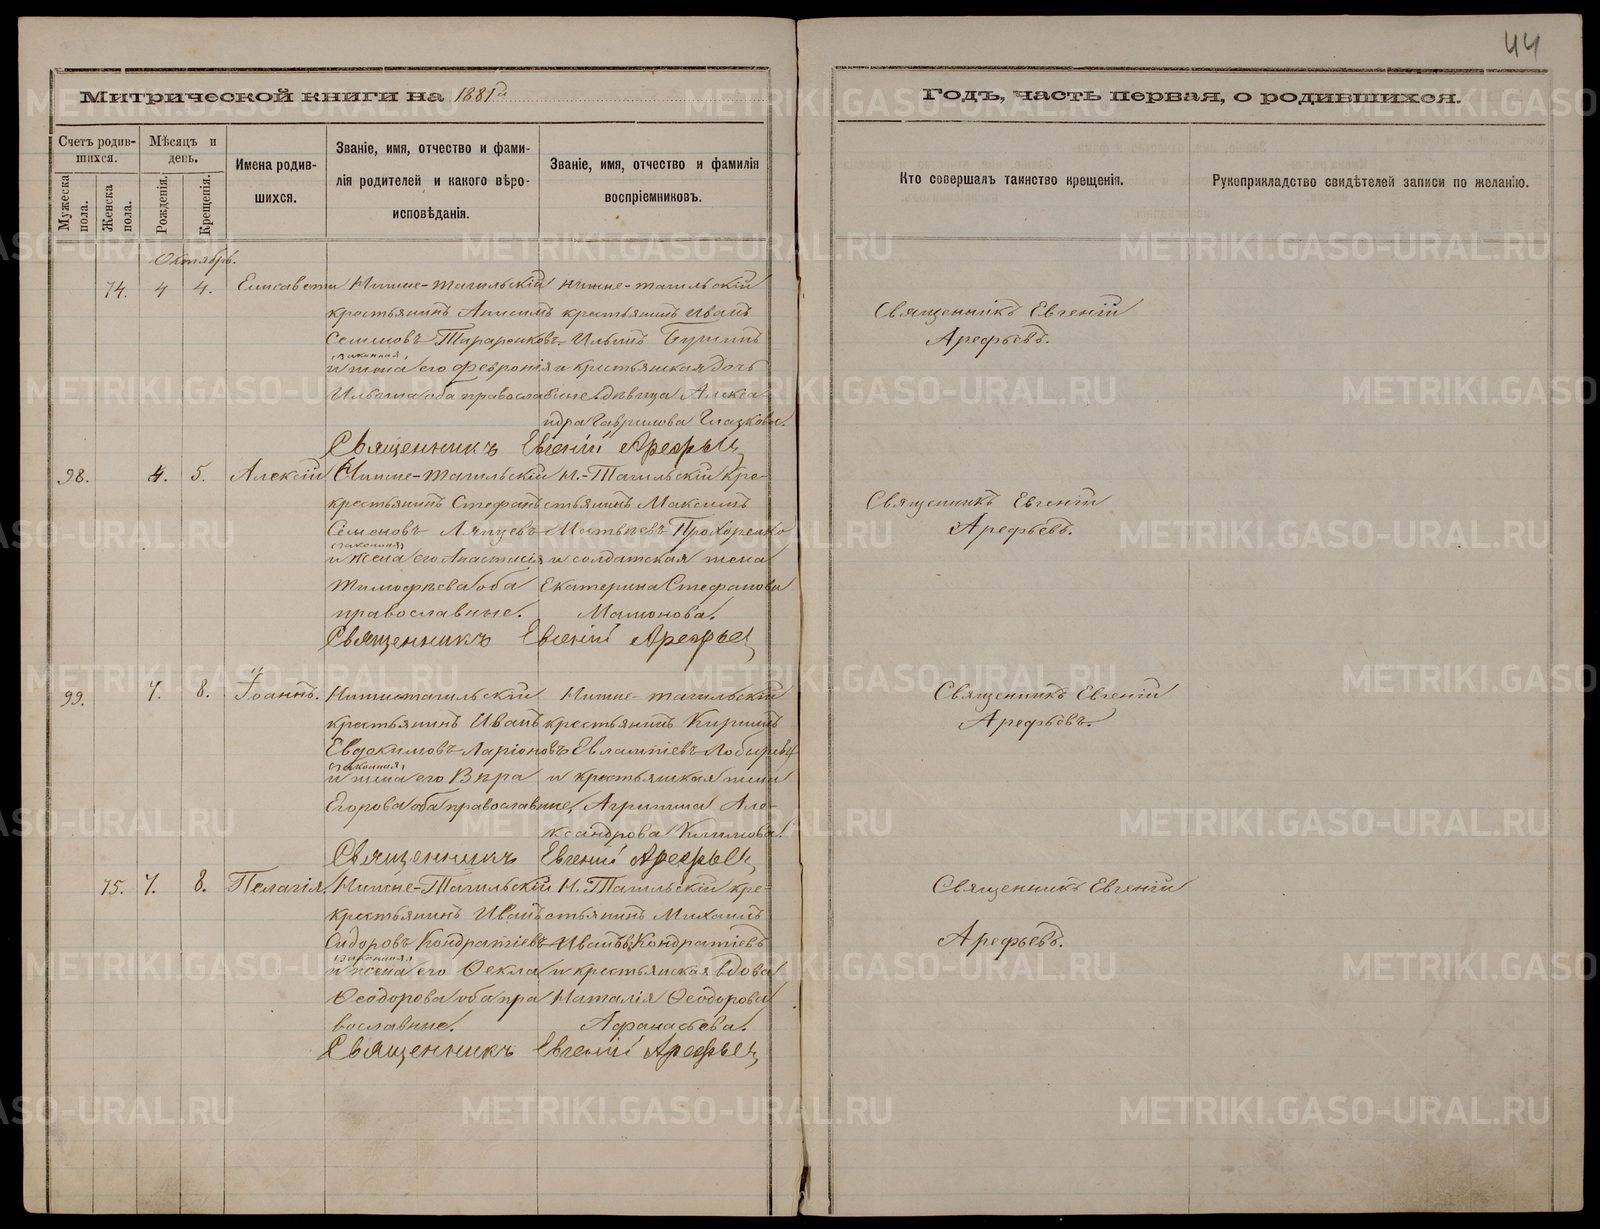 44
Митрической книги на 1881й
Годъ, часть первая, о родившихся.
Счетъ родив-
шихся.
Мужеска пола.
Женска пола.
Мѣсяцъ и
день.
Рожденія.
Крещенія.
Имена родив-
шихся.
Званіе, имя, отчество и фами-
лія родителей и какого вѣро-
исповѣданія.
Званіе, имя, отчество и фамилія
воспріемниковъ.
Кто совершалъ таинство крещенія.
Рукоприкладство свидѣтелей записи по желанію.
Октябрь.
74. 4 4. Елисавета
Нижне-тагильскій
крестьянинъ Анисимъ
Семеновъ
законная
и жена его Феврония
Ильина оба православные
Нижне-тагильскій
крестьянинъ Иванъ
Ильинъ
и крестьянская дочь
девица Алекса
ндра Гаврилова Глазкова.
Священникъ Евгеній
Арефьевъ.
Священникъ Евгеній Арефьевъ
98. 4. 5. Алексій
Нижне-Тагильскій
крестьянинъ Стефанъ
Семеновъ Ляпцевъ
законная
и жена его Анастасія
Тимофѣева оба
православные.
Н.-Тагильскій кре-
стьянинъ Максимъ
Матвѣевъ Прохоренко
и солдатская жена
Екатерина Стефанова
Мамонова.
Священникъ Евгеній
Арефьевъ.
Священникъ Евгеній Арефьевъ
99. 7. 8. Іоаннъ.
Нижнетагильскій
крестьянинъ Иванъ
Евдокимовъ Ларіоновъ
законная
и жена его Вѣра
Егорова оба православные,
Нижне-тагильскій
крестьянинъ Кирилъ
и крестьянская жена
Агрипина Але-
ксандрова Климова.
Священникъ Евгеній
Арефьевъ.
Священникъ Евгеній Арефьевъ
75. 7. 8. Пелагія.
Нижне-Тагильскій
крестьянинъ Иванъ
Сидоровъ Кондратіевъ
законная
и жена его Ѳекла
Ѳеодорова оба пра
вославные.
Н. Тагильскій кре-
стьянинъ Михаилъ
Ивановъ Кондратіевъ
и крестьянская вдова
Наталія Ѳеодорова
Афанасьева.
Священникъ Евгеній
Арефьевъ.
Священникъ Евгеній Арефьевъ
METRIKI.GASO-URAL.RU